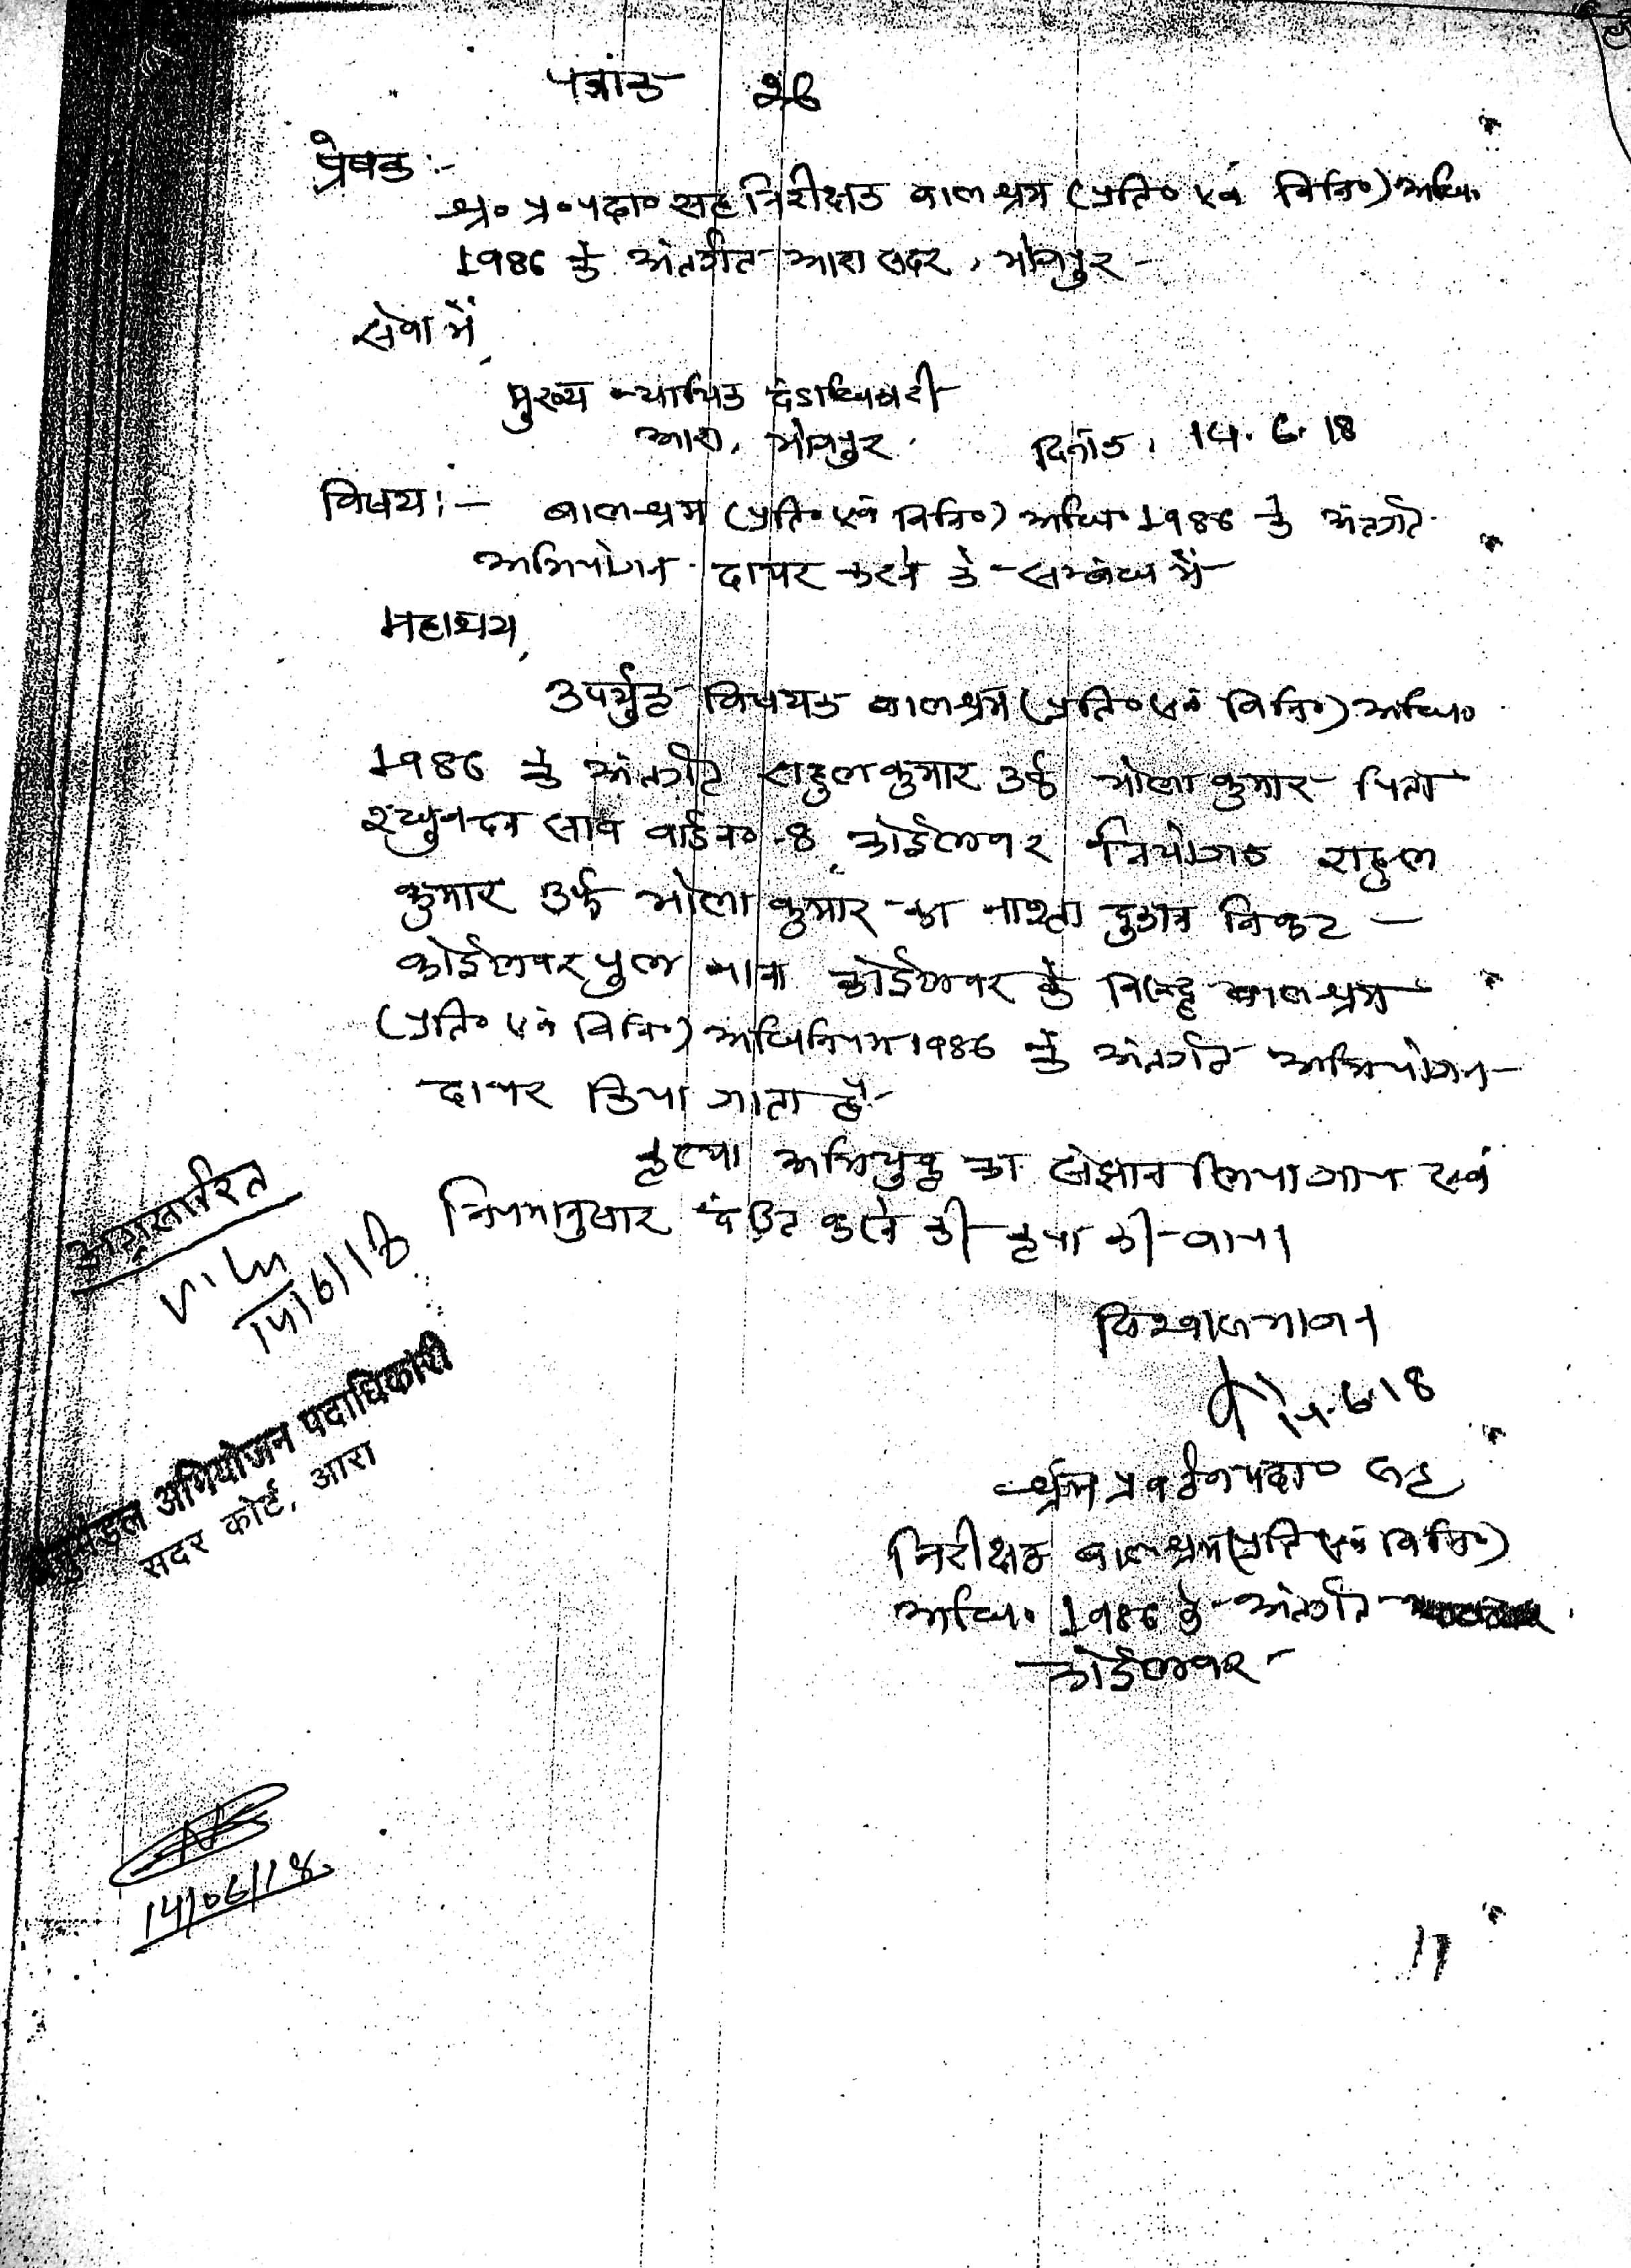 पत्रांक 26
प्रेषक :-
श्र० प्र० पदा० सह निरीक्षक बाल श्रम (प्रति० एवं विनि०) अधि०
1986 के अंतर्गत आरा सदर, भोजपुर
सेवा में,
मुख्य न्यायिक दंडाधिकारी
आरा, भोजपुर दिनांक, 14.6.18
विषय :- बाल श्रम (प्रति० एवं विनि०) अधि० 1986 के अंतर्गत
अभियोजन दायर करने के सम्बंध में
महाशय,
उपर्युक्त विषयक बाल श्रम (प्रति० एवं विनि०) अधि०
1986 के अंतर्गत राहुल कुमार उर्फ भोला कुमार पिता
साव वार्ड न० -8, कोईलवर नियोजक राहुल
कुमार उर्फ भोला कुमार का नाश्ता दुकान निकट
कोईलवर पुल थाना कोईलवर के विरुद्ध बाल श्रम
(प्रति० एवं विनि०) अधिनियम 1986 के अंतर्गत अभियोजन
दायर किया जाता है
कृप्या अभियुक्त का संज्ञान लिया जाय एवं
नियमानुसार दंडित करने की कृपा की जाय।
विश्वासभाजन
14.6.18
श्रम प्रवर्तन पदा० सह
निरीक्षक बाल श्रम (प्रति एवं विनि०)
अधि० 1986 के अंतर्गत
कोईलवर
अग्रसारित
14/6/18
अनुमंडल अभियोजन पदाधिकारी
सदर कोर्ट, आरा
14/06/18